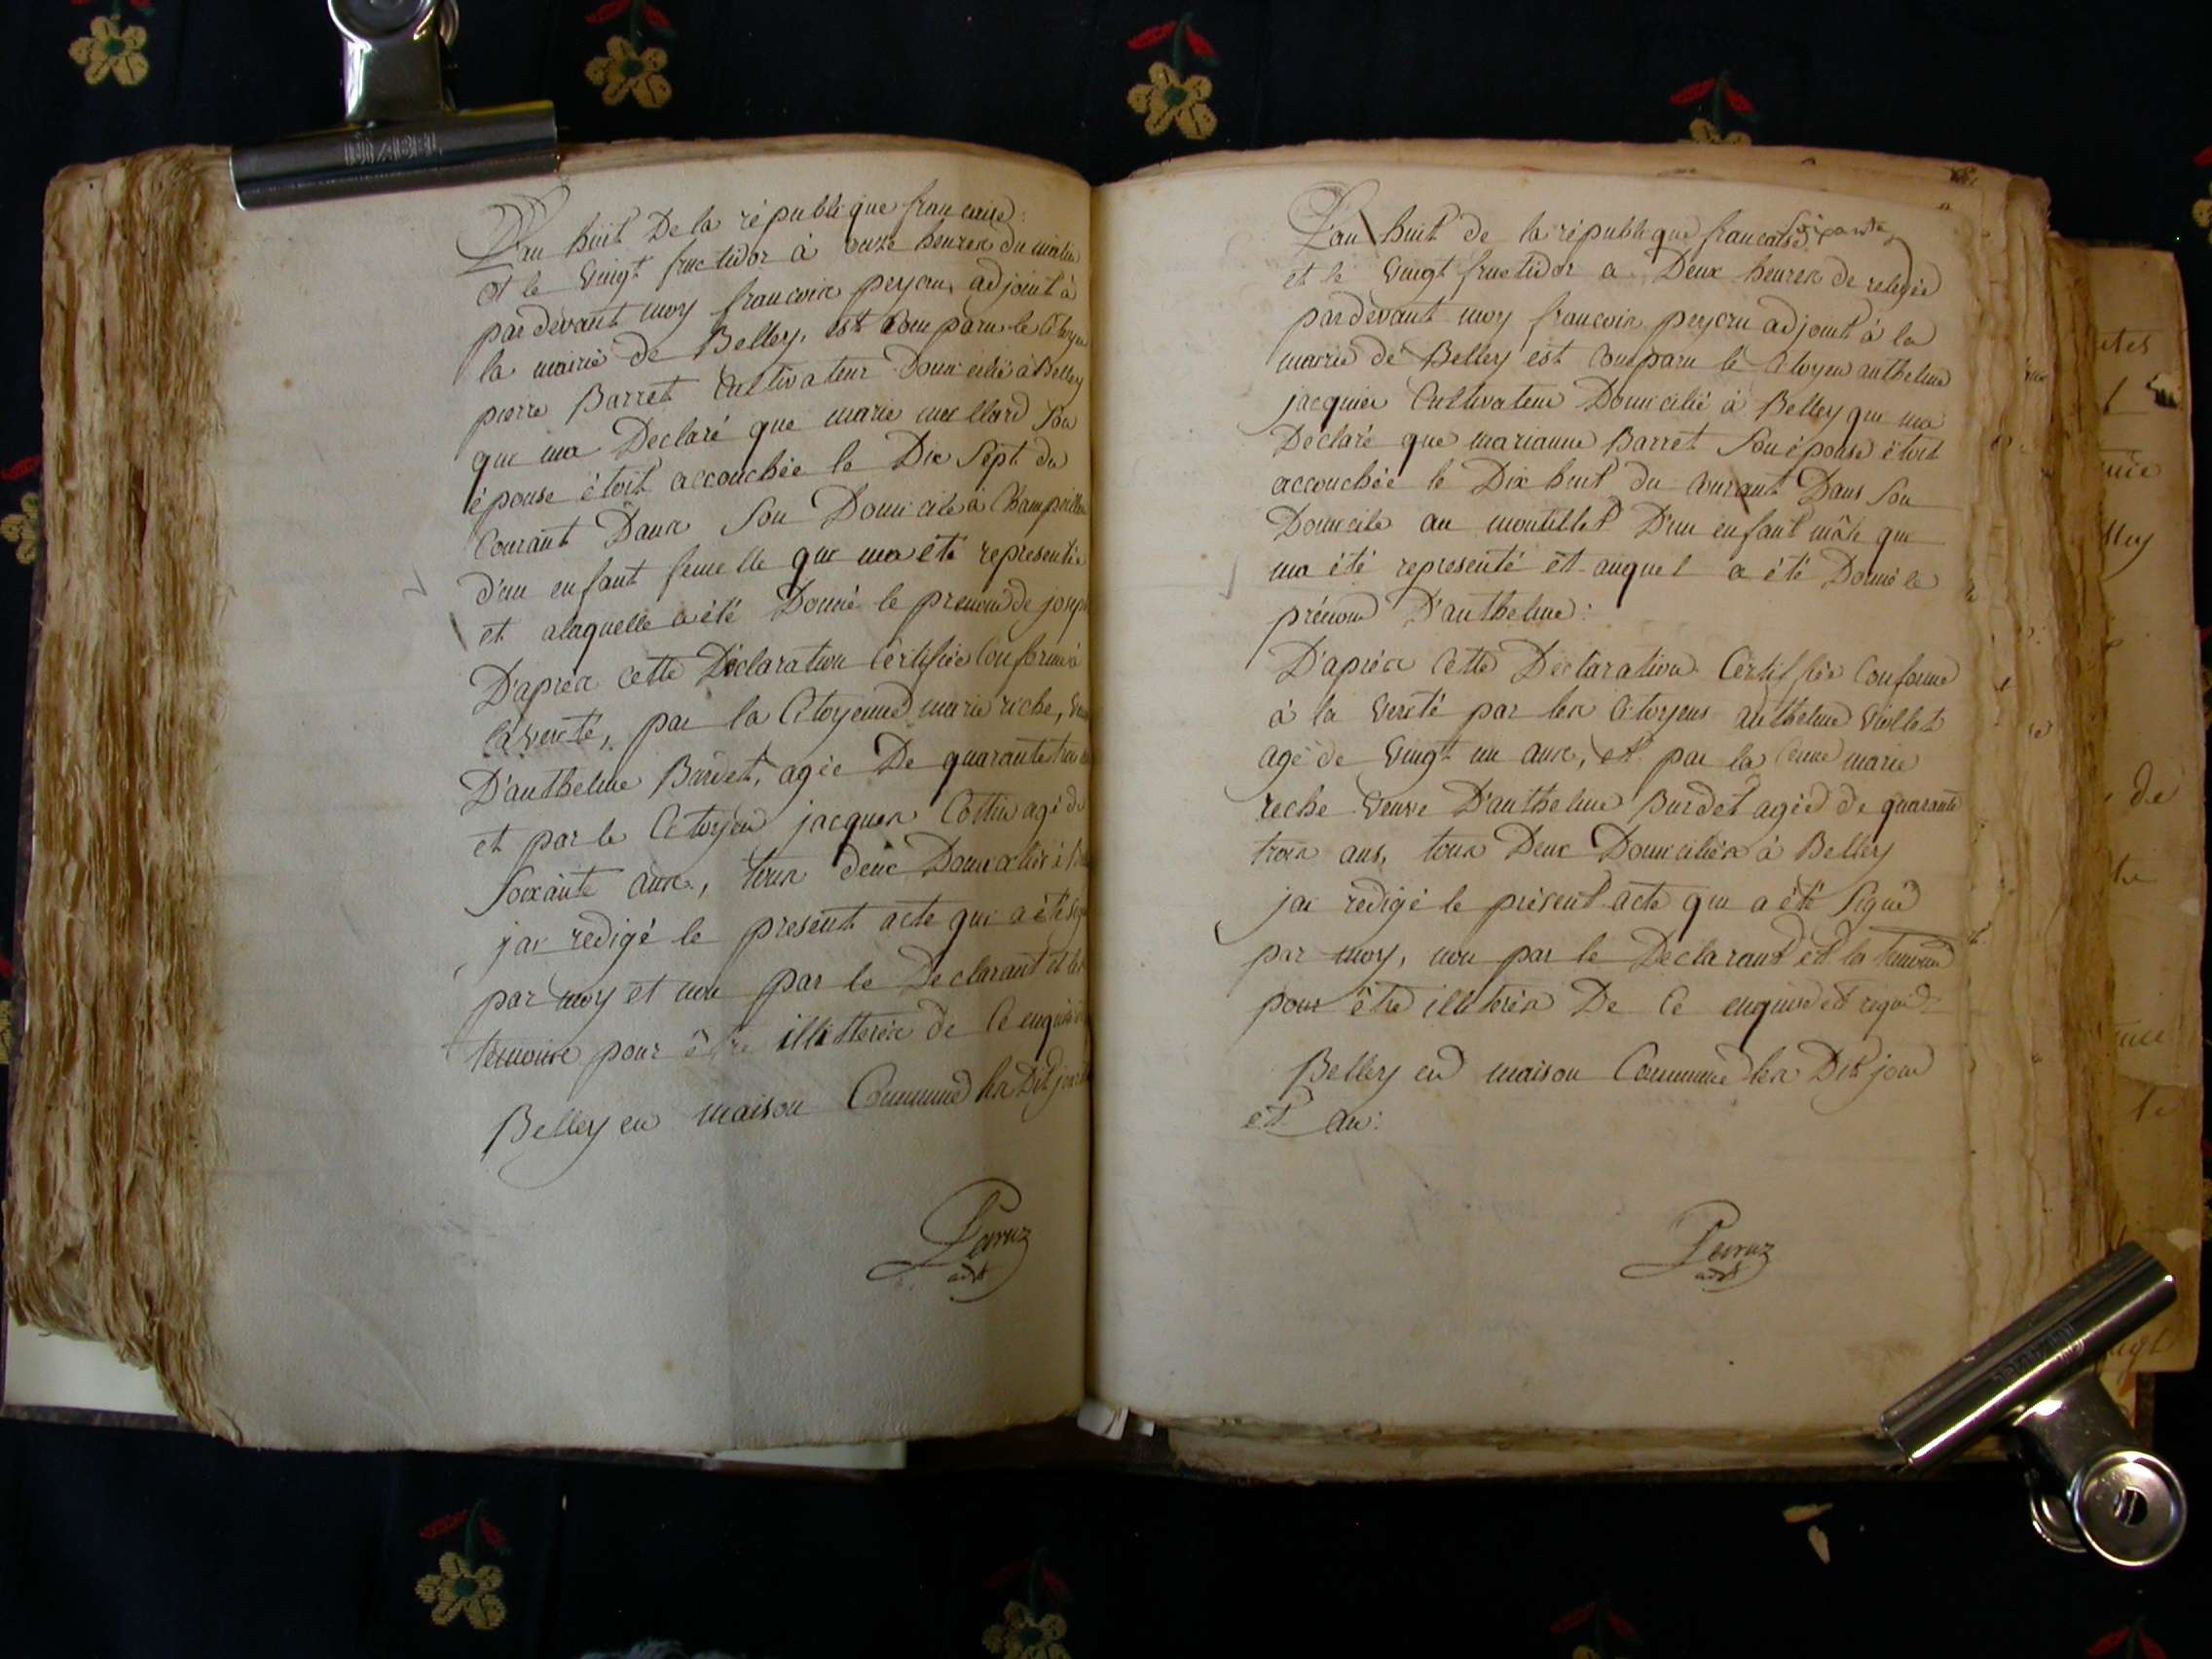 L'an huit De la république francaise:
et le vingt fructidor à onze heures du matin
pardevant moy francois peycru adjoint à
la mairie de Belley, est comparu le Citoyen
pierre Barret Cultivateur Domicilié à Belley
qui ma Declaré que marie mollard son
épouse étoit accouchée le Dix sept du
Courant Dans son Domicile à Champ
d'un enfant femelle qui ma été representée
et alaquelle a été Donné le prenom de joseph
D'après cette Déclaration Certifiée Conforme à
la verité, par la Citoyenne marie riche,
D'anthelme Burdet, agée De quarante trois
et par le Citoyen jacques Cottin agé de
soixante ans, tous deux Domiciliés à
j'ai redigé le present acte qui a été
par moy et non par le Declarant et les
temoins pour être illitterés de ce enquis
Belley en maison Commune les Dit jour
Peycruz
adjt
L'an huit de la république francaise soixante
et le vingt fructidor a Deux heures de relevée
pardevant moy francois peycru adjoint à la
mairie de Belley est comparu le Citoyen anthelme
jacquier Cultivateur Domicilié à Belley qui ma
Declaré que marianne Barret son épouse étoit
accouchée le Dix huit du courant Dans son
Domicile au montillet D'un enfant mâle qui
ma été representé et auquel a été Donné le
prénom D'anthelme:
D'après cette Déclaration Certiffiée Conforme
à la verité par les Citoyens anthelme viollet
agé de vingt un ans, et par la Cenne marie
riche veuve D'anthelme Burdet agée de quarante
trois ans, tous Deux Domiciliés à Belley
jai redigé le présent acte qui a été signé
par moy, non par le Declarant et les temoins
pour être illiterés De ce enquis et requis
Belley en maison Commune les Dit jour
et an:
Peycruz
adjt